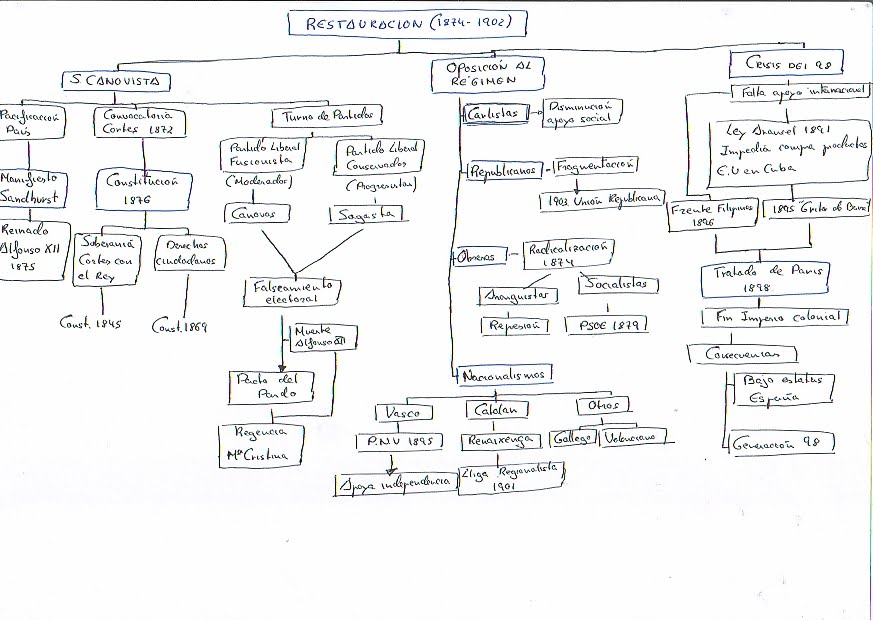 RESTAURACION (1874-1902)
S. CANOVISTA
OPOSICIÓN AL
REGIMEN
CRISIS DEL 98
Pacificación
País
Manifiesto
Sandhurst
Reinado
Alfonso XII
1875
Convocatoria
Cortes 1872
Constitución
1876
Soberanía
Cortes con
el Rey
Const. 1845
Derechos
ciudadanos
Const. 1869
Turno de Partidos
Partido Liberal
Fusionista
(Moderador)
Canovas
Partido Liberal
Conservador
(Progresistas)
Sagasta
Falseamiento
electoral
Muerte
Alfonso XII
Pacto del
Pardo
Regencia
Mª Cristina
Carlistas
Disminución
apoyo social
Republicanos
Fragmentación
1903 Unión Republicana
Obreros
Radicalización
1874
Anarquistas
Represión
Socialistas
PSOE 1879
Nacionalismos
Vasco
P.N.V 1895
Apoya independencia
Catalan
Renaixença
Lliga Regionalista
1901
Otros
Gallego
Valenciano
Falta apoyo internacional
Ley 1891
Impedia compra productos
E.U en Cuba
Frente Filipinas
1896
1895 Grito de
Tratado de Paris
1898
Fin Imperio colonial
Consecuencias
Bajo estatus
España
Generación 98